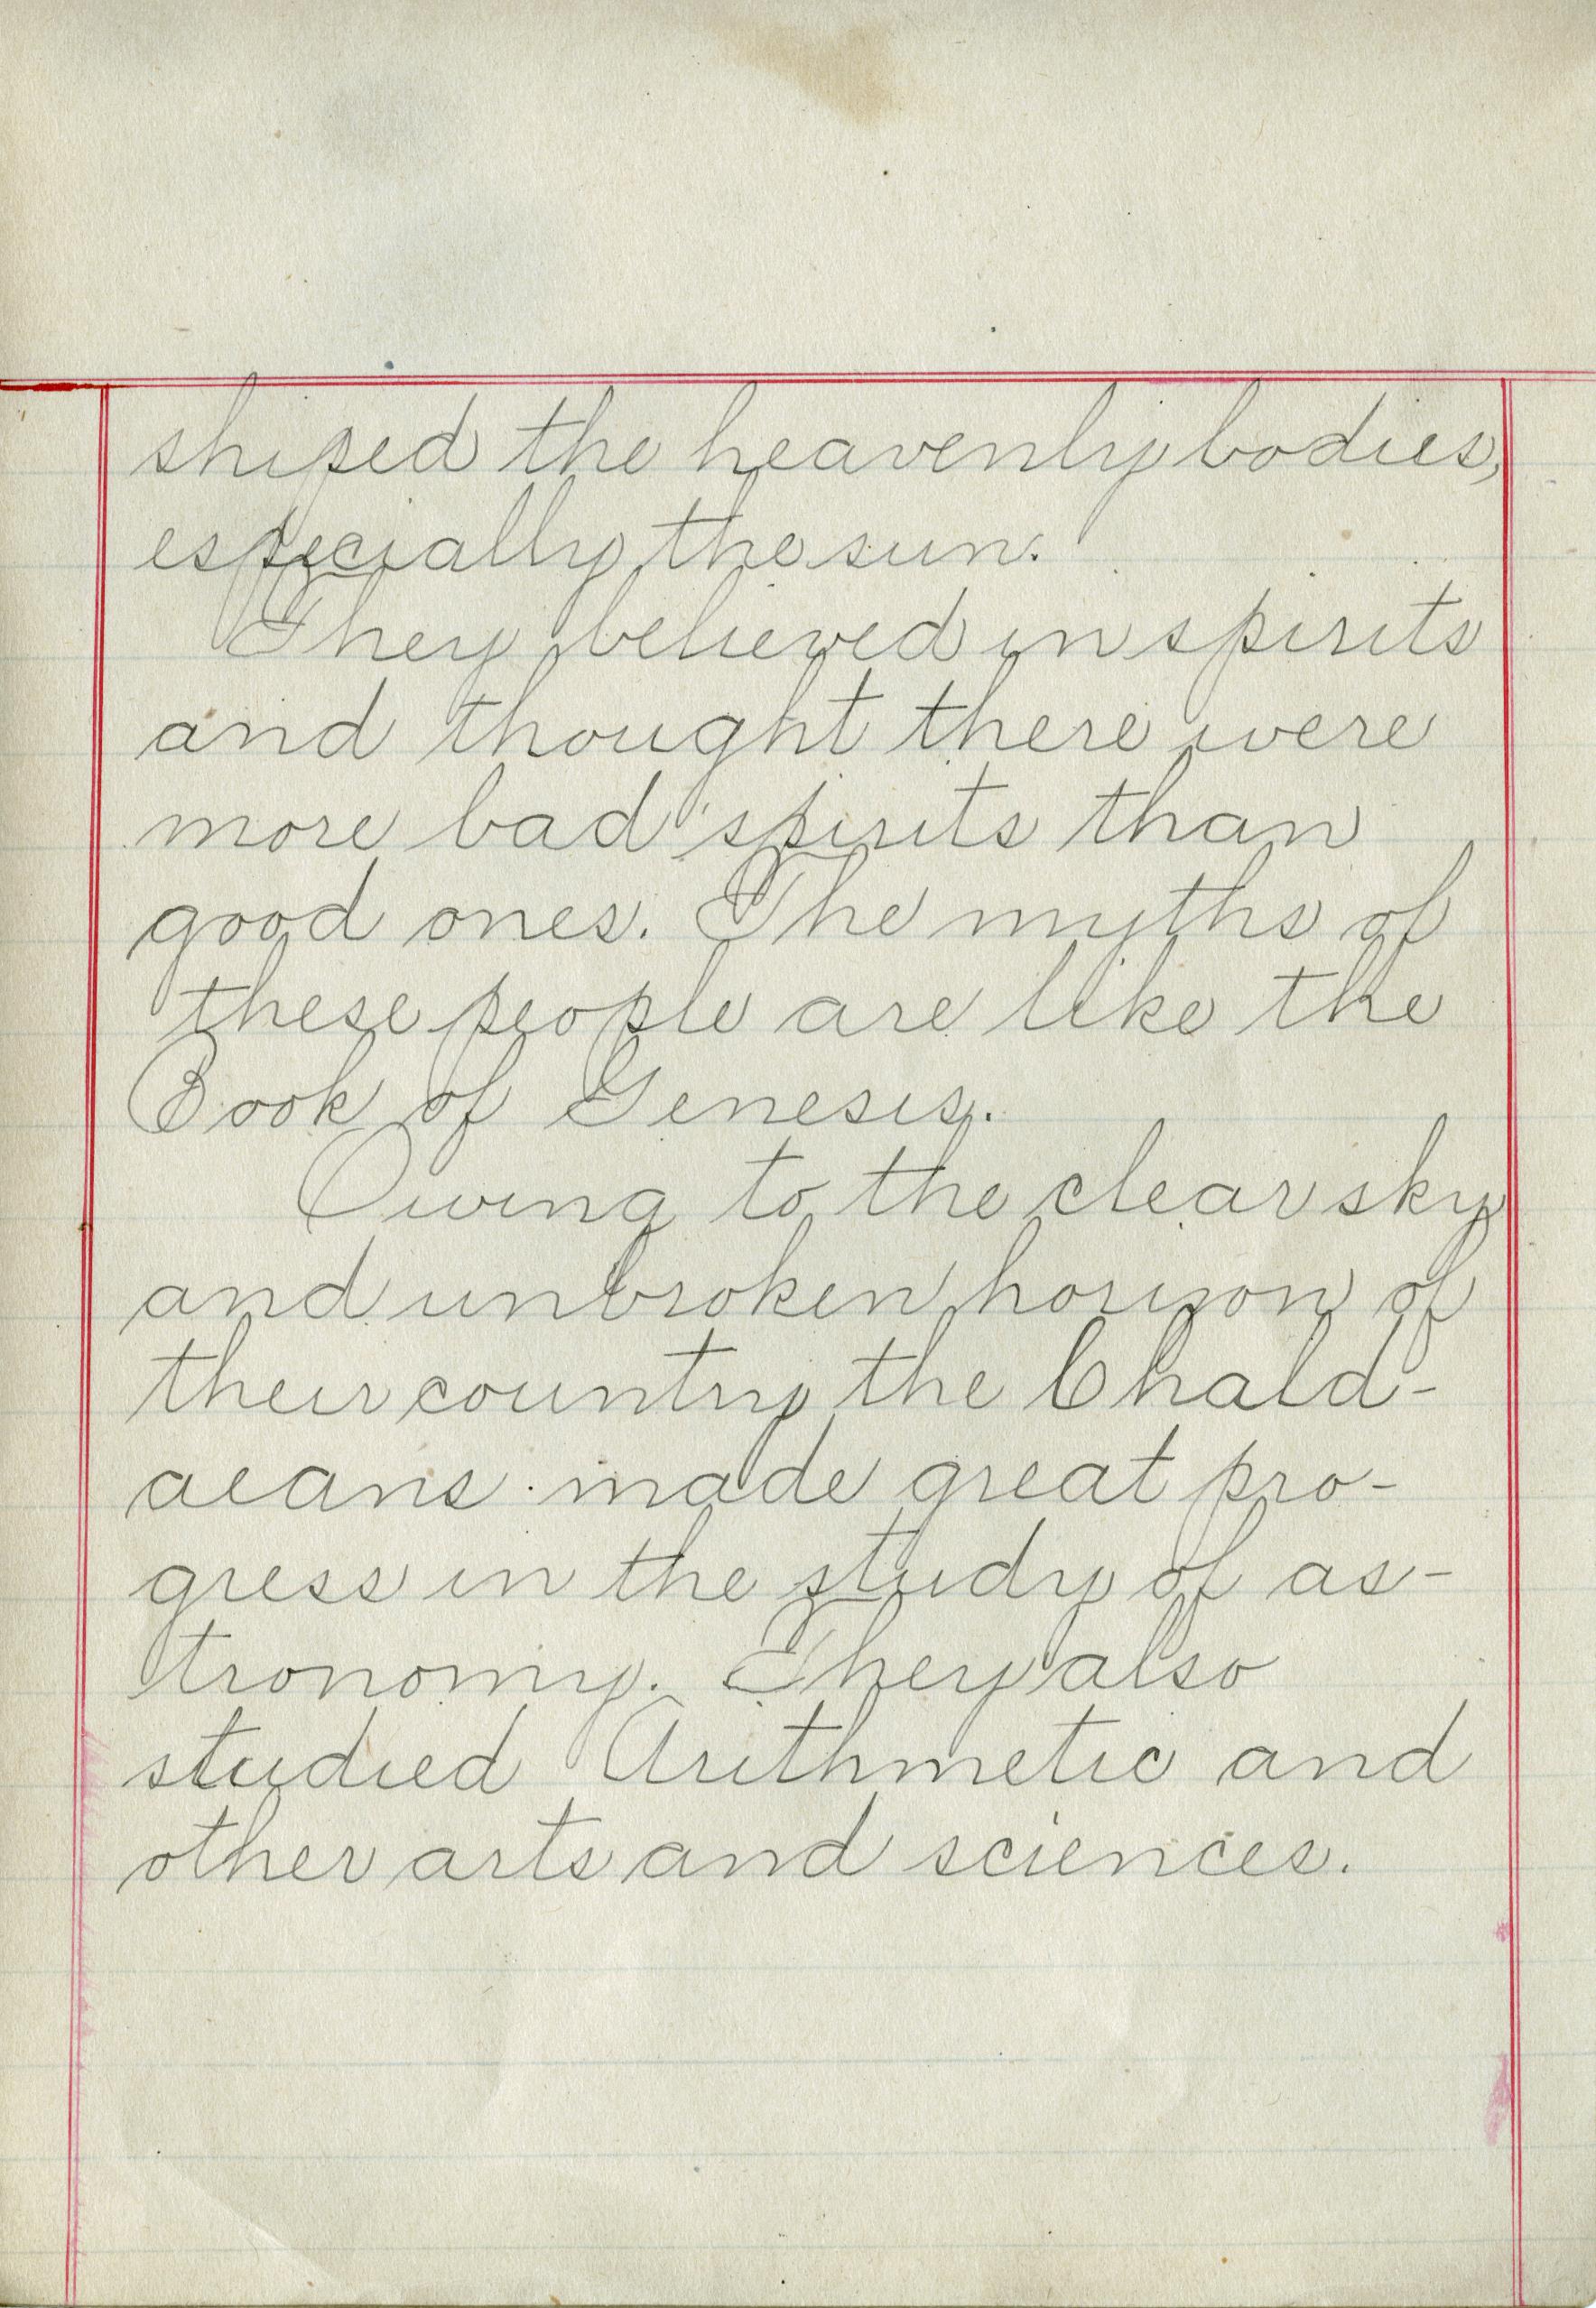 shiped the heavenly bodies,
especially the sun.
They believed in spirits
and thought there were
more bad spirits than
good ones. The myths of
these people are like the
Book of Genesis.
Owing to the clear sky
and unbroken horizon of
their country the Chald-
aeans made great pro-
gress in the study of as-
tronomy. They also
studied Arithmetic and
other arts and sciences.